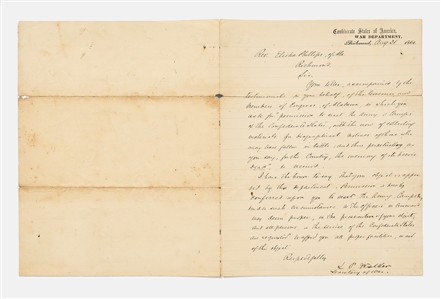 Confederate States of America,
WAR DEPARTMENT,
Richmond, Aug 21, 1861
Rev.
Richmond
Sir
Your letter, accompanied by the
testimonials in your behalf, of the Governor and
Members of Congress of Alabama, in which you
ask for permission to visit the Army &
of the Confederate States, with the view of collecting
materials for biographical notices of those who
may have fallen in battle, and thus perpetuating as
you say, "for the Country, the memory of its heroic
dead" is received.
I have the honor to say that your object is approved
by this department. Permission is hereby
conferred upon you to visit the Army,
under such circumstances as the Officers in Command
may deem proper, in the prosecution of your object,
and all persons in the service of the Confederate States
are requested to afford you all proper facilities, in aid
of the object.
Respectfully
L. P. Walker
Secretary of War.